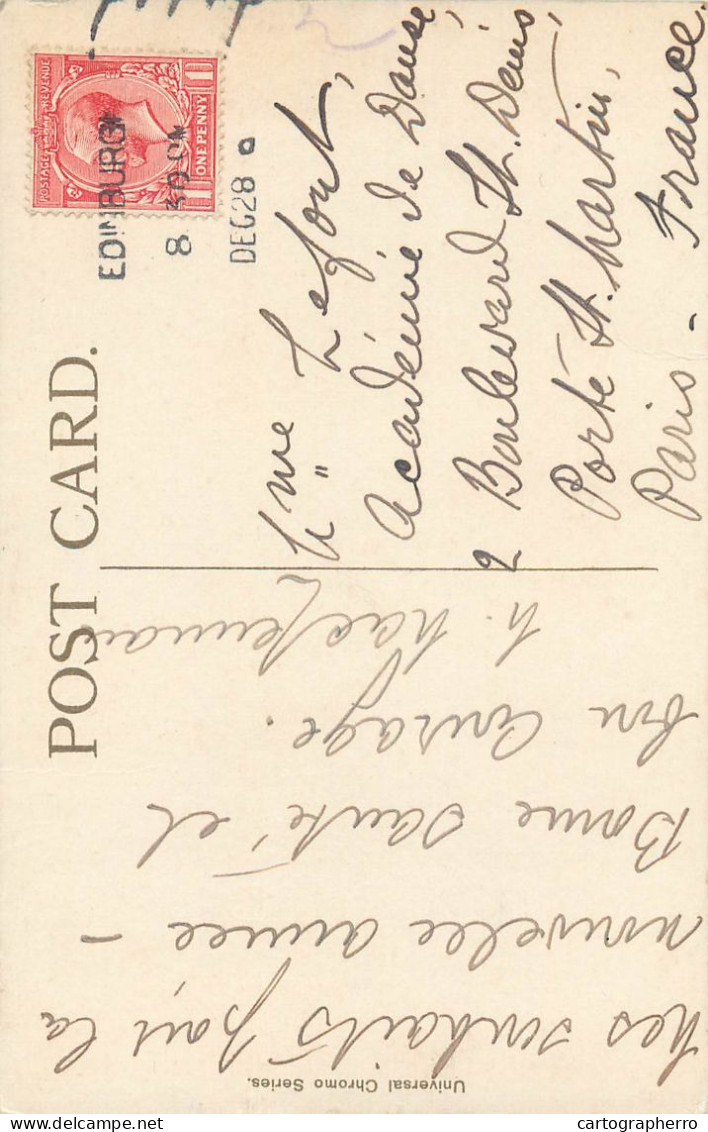 POST CARD.
POSTAGE REVENUE
ONE PENNY
EDINBURGH
8 30 
DEC 28
Mme Lefort,
Académie de Danse,
2 Boulevard St. Denis,
Porte St. Martin,
Paris - France.
Mes souhaits pour la
nouvelle année -
Bonne santé et
bon courage.
Universal Chromo Series.
cartographerro